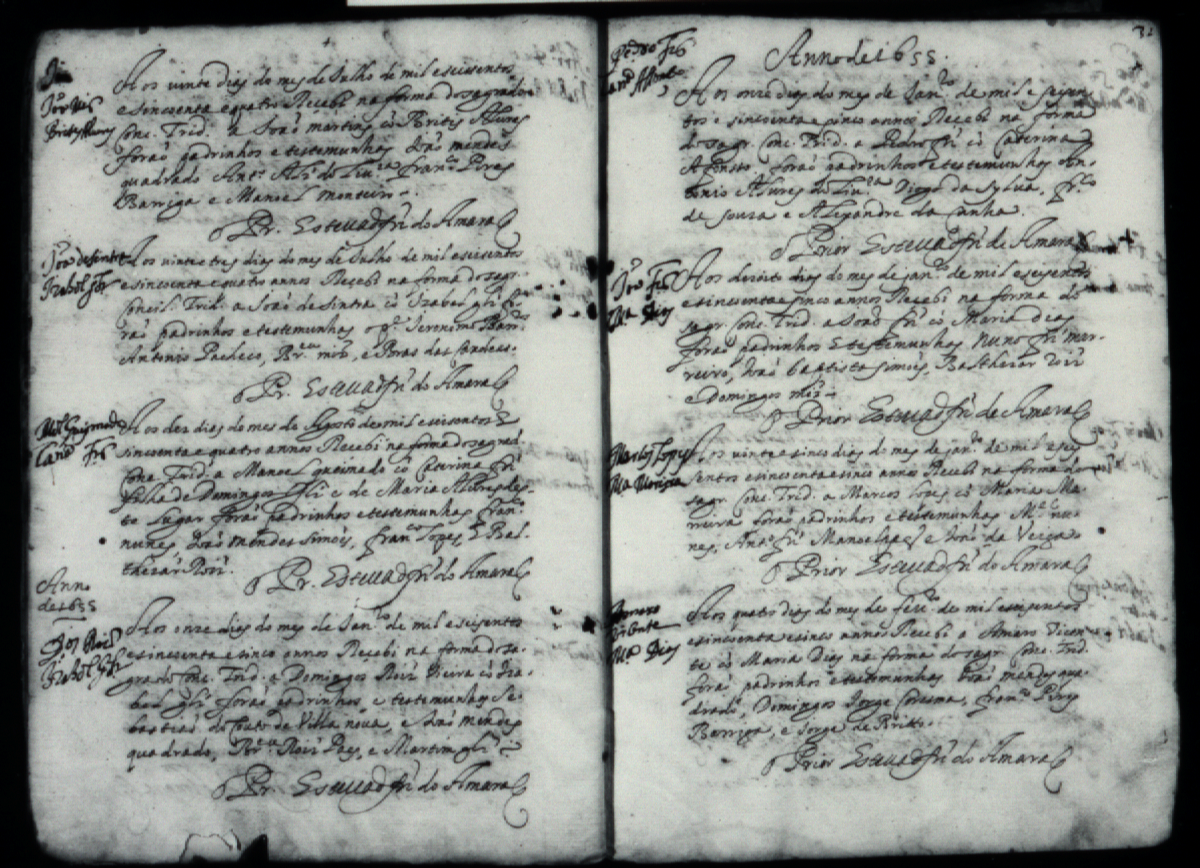 Aos vinte dias do mes de Julho de mil eseisentos
e sincoenta e quatro Recebi na forma do sagrado
Conc. Trid. a João martins cõ Brites Alvres
forão padrinhos e testemunhas João mendes
quadrado Antº Franco Pires
Barriga e Manoel monteiro.
o Pr. Estevão frz do Amaral
Jºão de sintra
Izabel
Aos vinte tres dias do mes de Julho de mil eseisentos
e sincoenta e quatro annos Recebi na forma do sagr.
Concil. Trid. a João de Sintra cõ Izabel glz fo
rão padrinhos e testemunhas o pe. Jeronimo
Antonio Pacheco, e Bras das
o Pr. Estevão frz do Amaral
Aos des dias do mes de Agosto de mil eseisentos e
sincoenta e quatro annos Recebi na forma do sagrado
Conc. Trid. a Manoel queimado cõ Caterina frz
filha de Domingos glz e de Maria Alvres des
te Lugar forão padrinhos e testemunhas Franco
nunes, João mendes simois, franco Lopes e Bal
thezar Roiz.
o Pr. Estevão frz do Amaral
Anno
de 1655
Dos Roiz
Izabel glz
Aos onze dias do mes de Janro de mil eseisentos
e sincoenta e sinco annos Recebi na forma do sa
grado Conc. Trid. a Domingos Roiz Vieira cõ Iza
bel glz forão padrinhos, e testemunhas Se
bastião do Couto de Villa nova, e João mendes
quadrado, Roiz Pays, e Martim glz
o Pr. Estevão frz do Amaral
Anno de 1655
Pedro Frz
Cana Afonso
Aos onze dias do mes de Janro de mil e seisen
tos e sincoenta e sinco annos Recebi na forma
do sagr. Conc. Trid. a Pedro frz cõ Caterina
Afonso. forão padrinhos e testemunhas An
tonio Alvres Diogo da Sylva, frco
de Souza e Alexandre da Cunha.
o Prior Estevão frz de Amaral
Jºão Frz
Ma Dias
Aos deseis dias do mes de janro de mil eseisentos
e sincoenta e sinco annos Recebi na forma do
sagr. Conc. Trid. a João frz cõ Maria Dias
forão padrinhos e testemunhas nuno frz mar
João baptista simois, Balthezar Roiz
e Domingos
o Prior Estevão frz de Amaral
Marcos Lopes
Ma Moreira
Aos vinte e sinco dias do mes de janro de mil e sey
sentos e sincoenta e sinco annos Recebi na forma do
sagr. Conc. Trid. a Marcos Lopes cõ Maria Mo
reira forão padrinhos e testemunhas Mel nu
nes, Anto frz Manoel e João da Veiga
o Prior Estevão frz do Amaral
Amaro
Vicente
Ma Dias
Aos quatro dias do mes de fevro de mil eseisentos
e sincoenta e sinco annos Recebi a Amaro Vicen
te cõ Maria Dias na forma do sagr. Conc. Trid.
forão padrinhos e testemunhas João mendes qua
drado, Domingos Jorge franco Pires
Barriga, e Jorge de Brito.
o Prior Estevão frz do Amaral